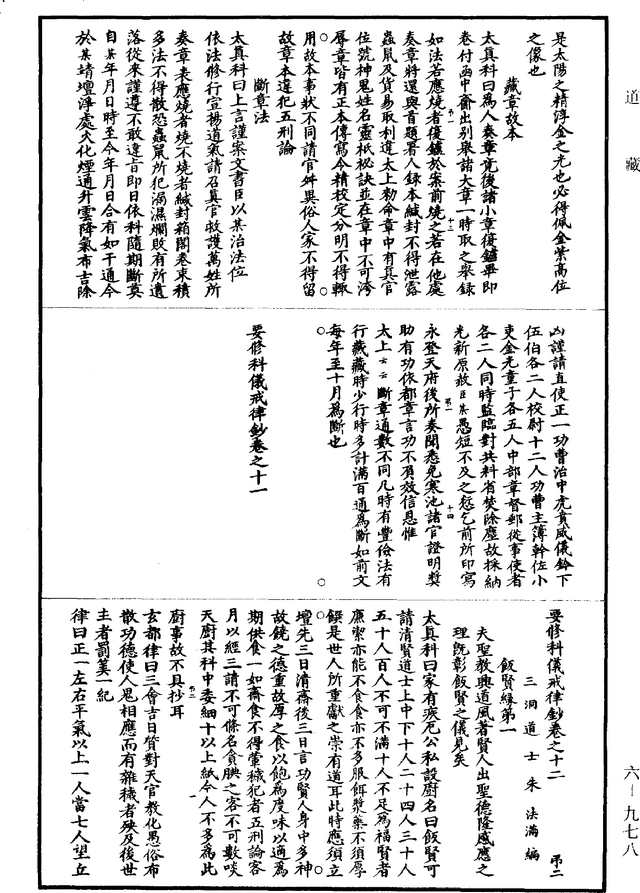 道藏
是太陽之精淳金之光也必得佩金紫高位
之像也
藏章故本
太真科曰為人奏章竟後諸小章復鑪畢即
卷付函中齋出別舉諸大章一時取之舉錄
如法若應燒者復鑪於案前燒之若在他處
奏章將還與首題署人錄本緘封不得泄露
蟲鼠及貿易取利違太上勅命章中有真官
位號神鬼姓名靈秖祕訣並在章中不可洿
辱章皆有正本傳寫令精校定分明不得輙
用故本事狀不同請官舛異俗人家不得留
故章本違犯五刑論
斷章法
太真科曰上言謹案文書臣以某治法位
依法修行宣揚道氣請召真官救護萬姓所
奏章表應燒者燒不燒者緘封箱閣卷束積
多法不得散恐蟲鼠所犯漏濕爛敗有所遺
落從來謹遵不敢違旨即日依科隨期斷奠
自某年月日時至今年月日合有如干通今
於某靖壇淨處火化煙通升雲降氣布吉除
凶謹請直使正一功曹治中虎賁威儀鈴下
伍伯各二人校尉十二人功曹主簿幹佐小
吏金光童子各五人中部章督郵從事使者
各二人同時監臨對共料省焚除塵故採納
光新原赦臣某愚短不及之愆乞前所印寫
永登天府後所奏聞悉免寒池諸官證明獎
助有功依都章言功不負效信恩惟
太上云云斷章通數不同凡時有豐儉法有
行藏藏時少行時多計滿百通為斷如前文
每年至十月為斷也
要修科儀戒律鈔卷之十一
要修科儀戒律鈔卷之十二
弔二
三洞道士朱法滿編
飯賢緣第一
夫聖教興道風著賢人出聖德隆感應之
理旣彰飯賢之儀見矣
太真科曰家有疾厄公私設廚名曰飯賢可
請清賢道士上中下十人二十四人三十人
五十人百人不可不滿十人不足為福賢者
廉潔亦能不食食亦不多服餌漿藥不須厚
饌是世人所重獻之崇有道耳此時應須立
壇先三日清齋後三日言功賢人身中多神
故饒之德重故厚之食以飽為度味以適為
期供食一如齋食不得葷穢犯者五刑論客
月以經三請不可條名貪腆之客不可數啖
天廚其科中委細十以上紙今人不多為此
廚事故不具抄耳
玄都律曰三會吉日質對天官教化愚俗布
散功德使人鬼相應而有雜穢者殃及後世
主者罰筭一紀
律曰正一左右平氣以上一人當七人望立
六-九七八